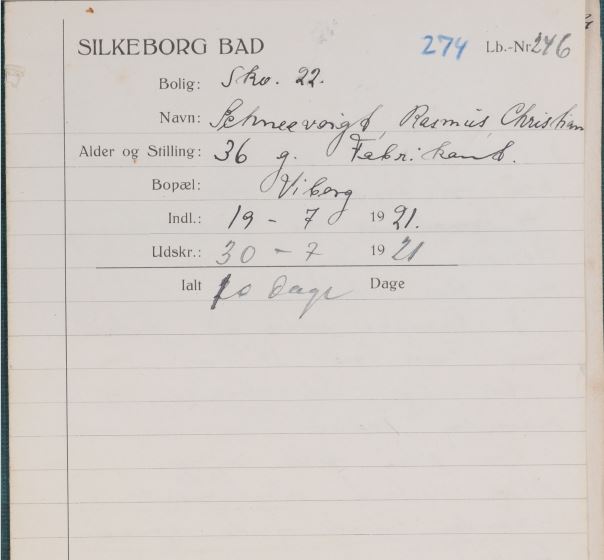 SILKEBORG BAD 274 Lb.-Nr 246
Bolig: Sko. 22.
Navn: Schneevoigt, Rasmus Christian
Alder og Stilling: 36 g. Fabrikant.
Bopæl: Viborg
Indl.: 19 - 7 1921.
Udskr.: 30 - 7 1921
Ialt 10 dage Dage